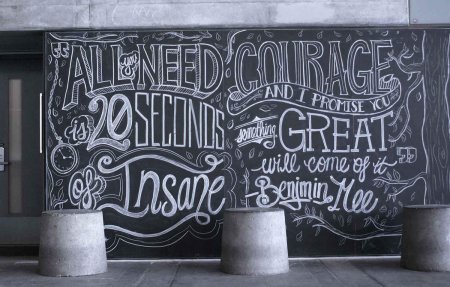 "ALL you NEED
is 20 SECONDS
of Insane
COURAGE
AND I PROMISE YOU
something GREAT
will come of it"
Benjmin Mee